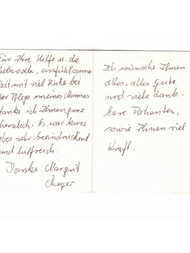 Für Ihre Hilfe u. die
liebevolle, einfühlsame
Zeit mit viel Ruhe bei
der Pflege meines Mannes
danke ich Ihnen ganz
herzlich. Es war kurz
aber sehr beeindruckend
und hilfreich.
Danke Margrit
Ich wünsche Ihnen
alles, alles Gute
und viele dank-
bare Patienten,
sowie Ihnen viel
Kraft.